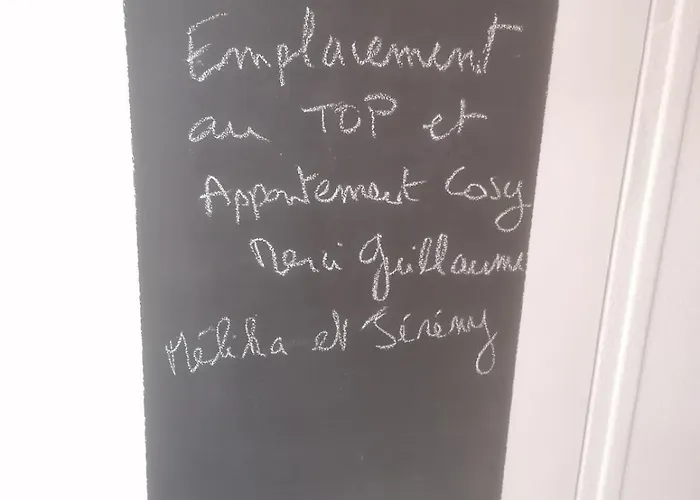 Emplacement
au TOP et
Appartement Cosy
Merci Guillaume
Mélika et Jérémy